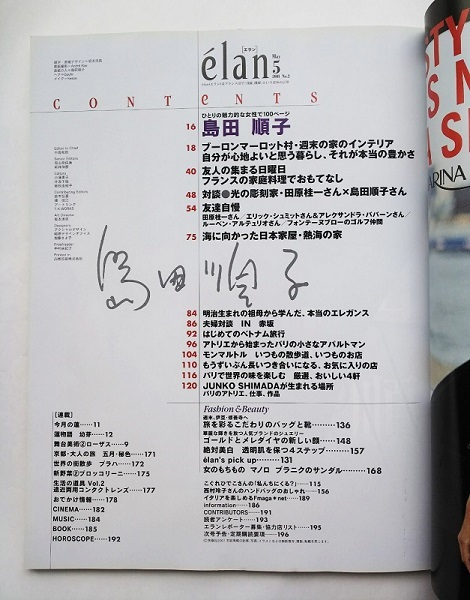 élan
エラン
May
5
2001 No.2
CONTENTS
ひとりの魅力的な女性で100ページ
16 島田 順子
18 ブーロンマーロット村・週末の家のインテリア
自分が心地よいと思う暮らし、それが本当の豊かさ
40 友人の集まる日曜日
フランスの家庭料理でおもてなし
48 対談●光の彫刻家・田原桂一さん×島田順子さん
54 友達自慢
田原桂一さん/エリック・シュミットさん&アレクサンドラ・バパーンさん/
ルーベン・アルテェリオさん/フォンテーヌブローのゴルフ仲間
75 海に向かった日本家屋・熱海の家
島田順子
84 明治生まれの祖母から学んだ、本当のエレガンス
86 夫婦対談 IN 赤坂
92 はじめてのベトナム旅行
96 アトリエから始まったパリの小さなアパルトマン
104 モンマルトル いつもの散歩道、いつものお店
110 もうずいぶん長いつき合いになる、お気に入りの店
116 パリで世界の味を楽しむ 厳選、おいしい4軒
120 JUNKO SHIMADAが生まれる場所
パリのアトリエ、仕事、作品
[連載]
今月の蓮……11
蓮物語 幼芽……12
舞台美術②ローザス……9
京都・大人の旅 五月・秘色……171
世界の街散歩 プラハ……172
新野菜②ブロッコリーニ……175
生活の道具 Vol.2
遠近両用コンタクトレンズ……177
おでかけ情報……178
CINEMA……182
MUSIC……184
BOOK……185
HOROSCOPE……192
Fashion&Beauty
週末、伊豆・修善寺へ
旅を彩るこだわりのバッグと靴……136
華麗な輝きを放つ人気ブランドのジュエリー
ゴールドとメレダイヤの新しい顔……148
絶対美白 透明肌を保つ4ステップ……157
elan's pick up……131
女のもちもの マノロ ブラニクのサンダル……168
こぐれひでこさんの「私んちにくる?」……115
西村玲子さんのハンドバッグのおしゃれ……156
イタリアを楽しめるFmaga*net……189
information……186
CONTRIBUTORS……191
読者アンケート……193
エランレポーター募集・協力店リスト……195
次号予告・定期購読要項……196
STY
S M
A S
ARINA